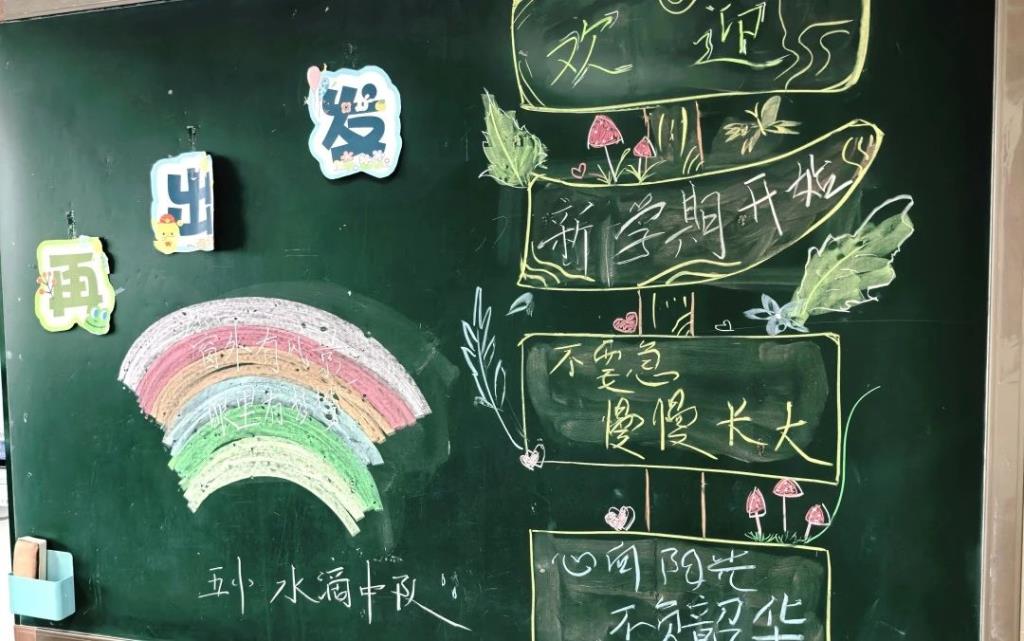 再出发
窗外有风景
眼里有梦想
五小 水滴中队
欢 迎
新学期开始
不要急
慢慢长大
心向阳光
不负韶华